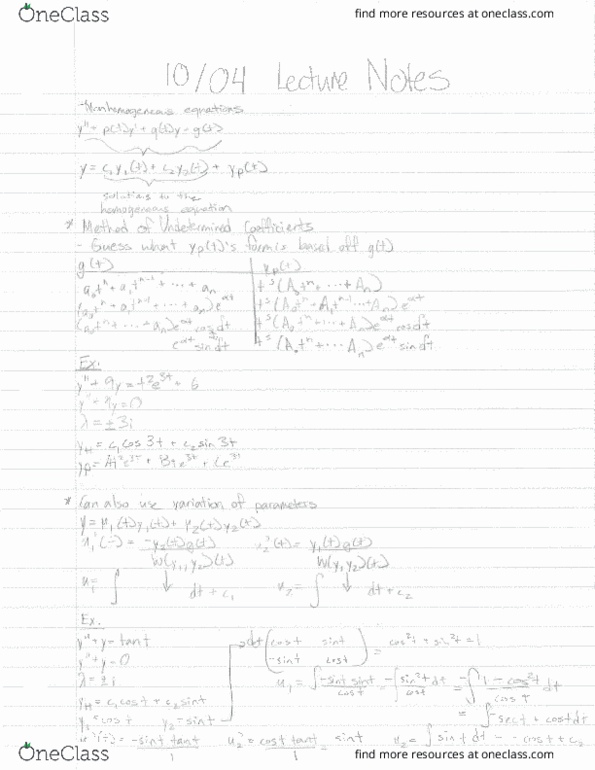 OneClass
find more resources at oneclass.com
10/04 Lecture Notes
-Nonhomogenous equations
y"+p(t)y'+q(t)y=g(t)
y=c₁y₁(t)+c₂y₂(t)+yp(t)
solutions to the
homogenous equation
* Method of Undetermined Coefficients
- Guess what yp(t)'s form is based off g(t)
g(t) yp(t)
a₀tⁿ+a₁tⁿ⁻¹+⋯+aₙ tˢ(A₀tⁿ+⋯+Aₙ)
(a₀tⁿ+a₁tⁿ⁻¹+⋯+aₙ)e^αt tˢ(A₀tⁿ+A₁tⁿ⁻¹⋯+Aₙ)e^αt
(a₀tⁿ+⋯+aₙ)e^αt cosβt tˢ(A₀tⁿ+⋯+Aₙ)e^αt cosβt
e^αt sinβt tˢ(A₀tⁿ+⋯Aₙ)e^αt sinβt
Ex.
y"+9y=t²e^3t+6
y"+9y=0
λ=±3i
yH=c₁cos3t+c₂sin3t
yp=At²e^3t+Bte^3t+Ce^3t
* Can also use variation of parameters
y=μ₁(t)y₁(t)+μ₂(t)y₂(t)
u₁'(t)=-y₂(t)g(t) u₂'(t)=y₁(t)g(t)
W(y₁,y₂)(t) W(y₁,y₂)(t)
u₁=∫ ↓ dt+c₁ u₂=∫ ↓ dt+c₂
Ex.
y"+y=tant det(cost sint
-sint cost) =cos²t+sin²t=1
y"+y=0
λ=±i u₁=∫-sint sint/cost=-∫sin²t dt/cost=-∫1-cos²t/cost dt
yH=c₁cost+c₂sint
y₁=cost y₂=sint =∫-sect+cost dt
u₁'(t)=-sint tant/1 u₂'=cost tant/1=sint u₂=∫sint dt=-cost+c₂
OneClass
find more resources at oneclass.com